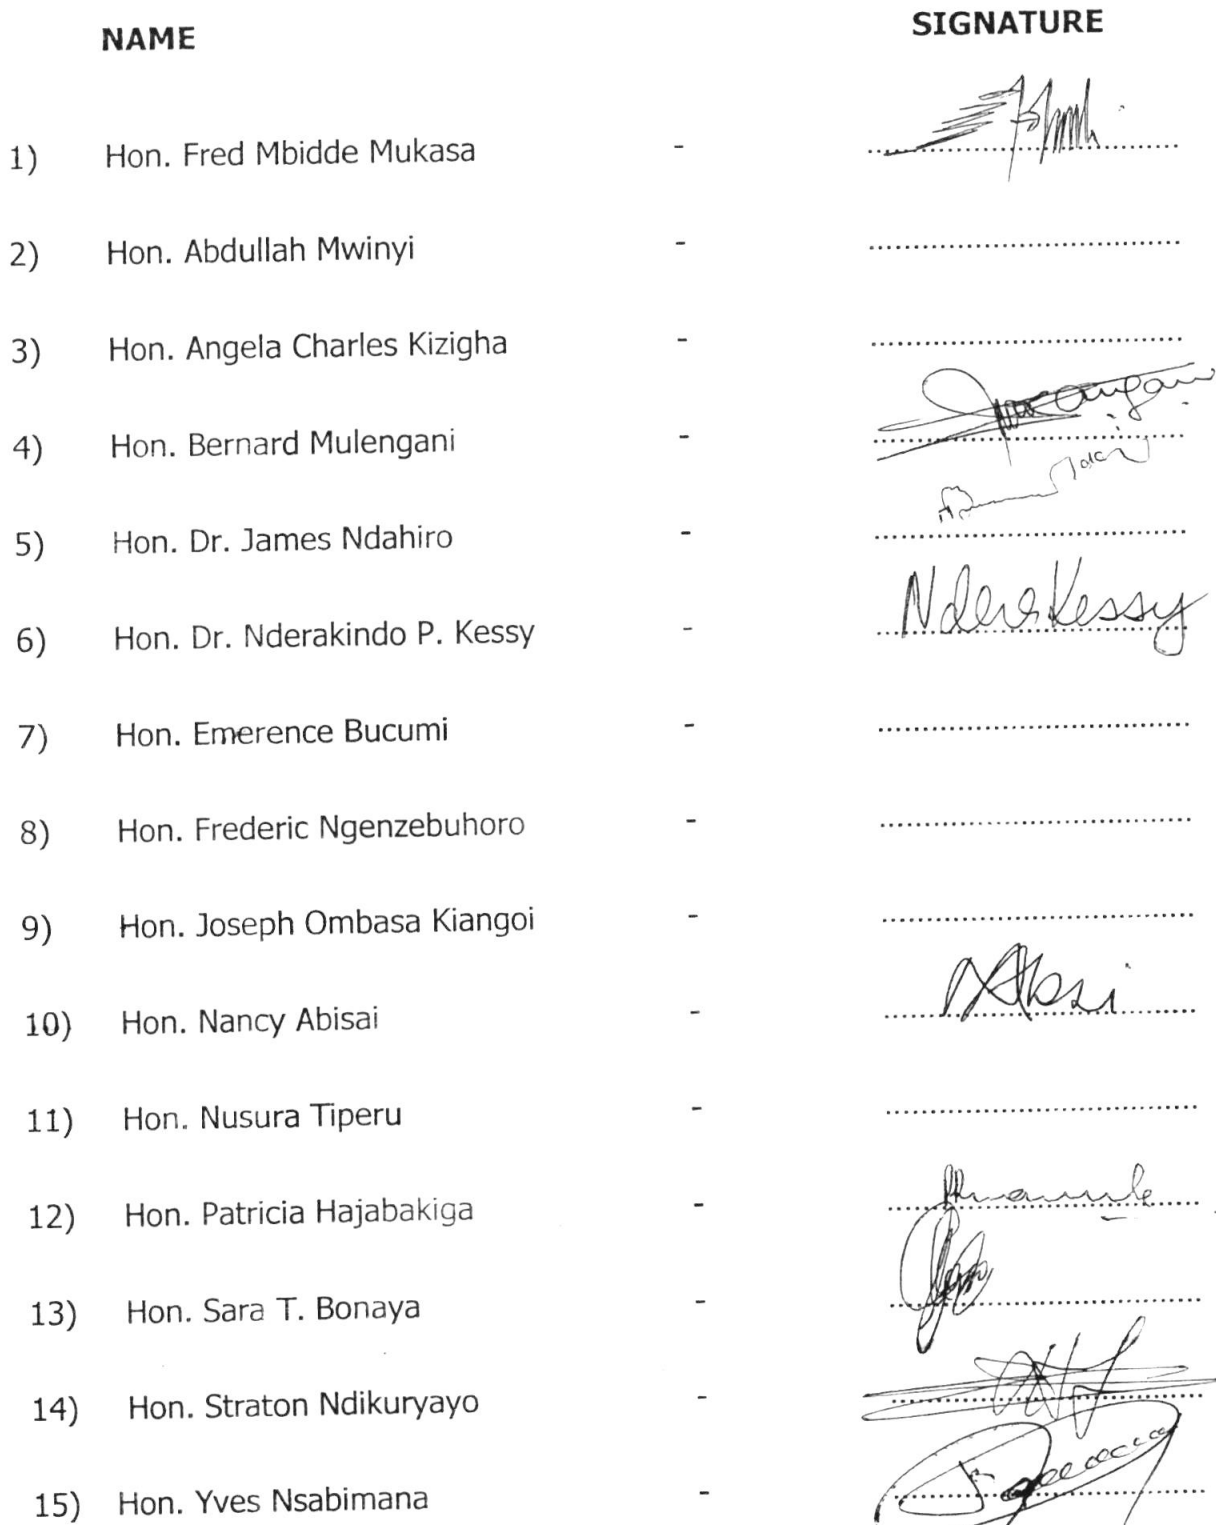 NAME SIGNATURE
1) Hon. Fred Mbidde Mukasa -
2) Hon. Abdullah Mwinyi -
3) Hon. Angela Charles Kizigha -
4) Hon. Bernard Mulengani -
5) Hon. Dr. James Ndahiro -
6) Hon. Dr. Nderakindo P. Kessy - NdereKessy
7) Hon. Emerence Bucumi -
8) Hon. Frederic Ngenzebuhoro -
9) Hon. Joseph Ombasa Kiangoi -
10) Hon. Nancy Abisai -
11) Hon. Nusura Tiperu -
12) Hon. Patricia Hajabakiga -
13) Hon. Sara T. Bonaya -
14) Hon. Straton Ndikuryayo -
15) Hon. Yves Nsabimana -